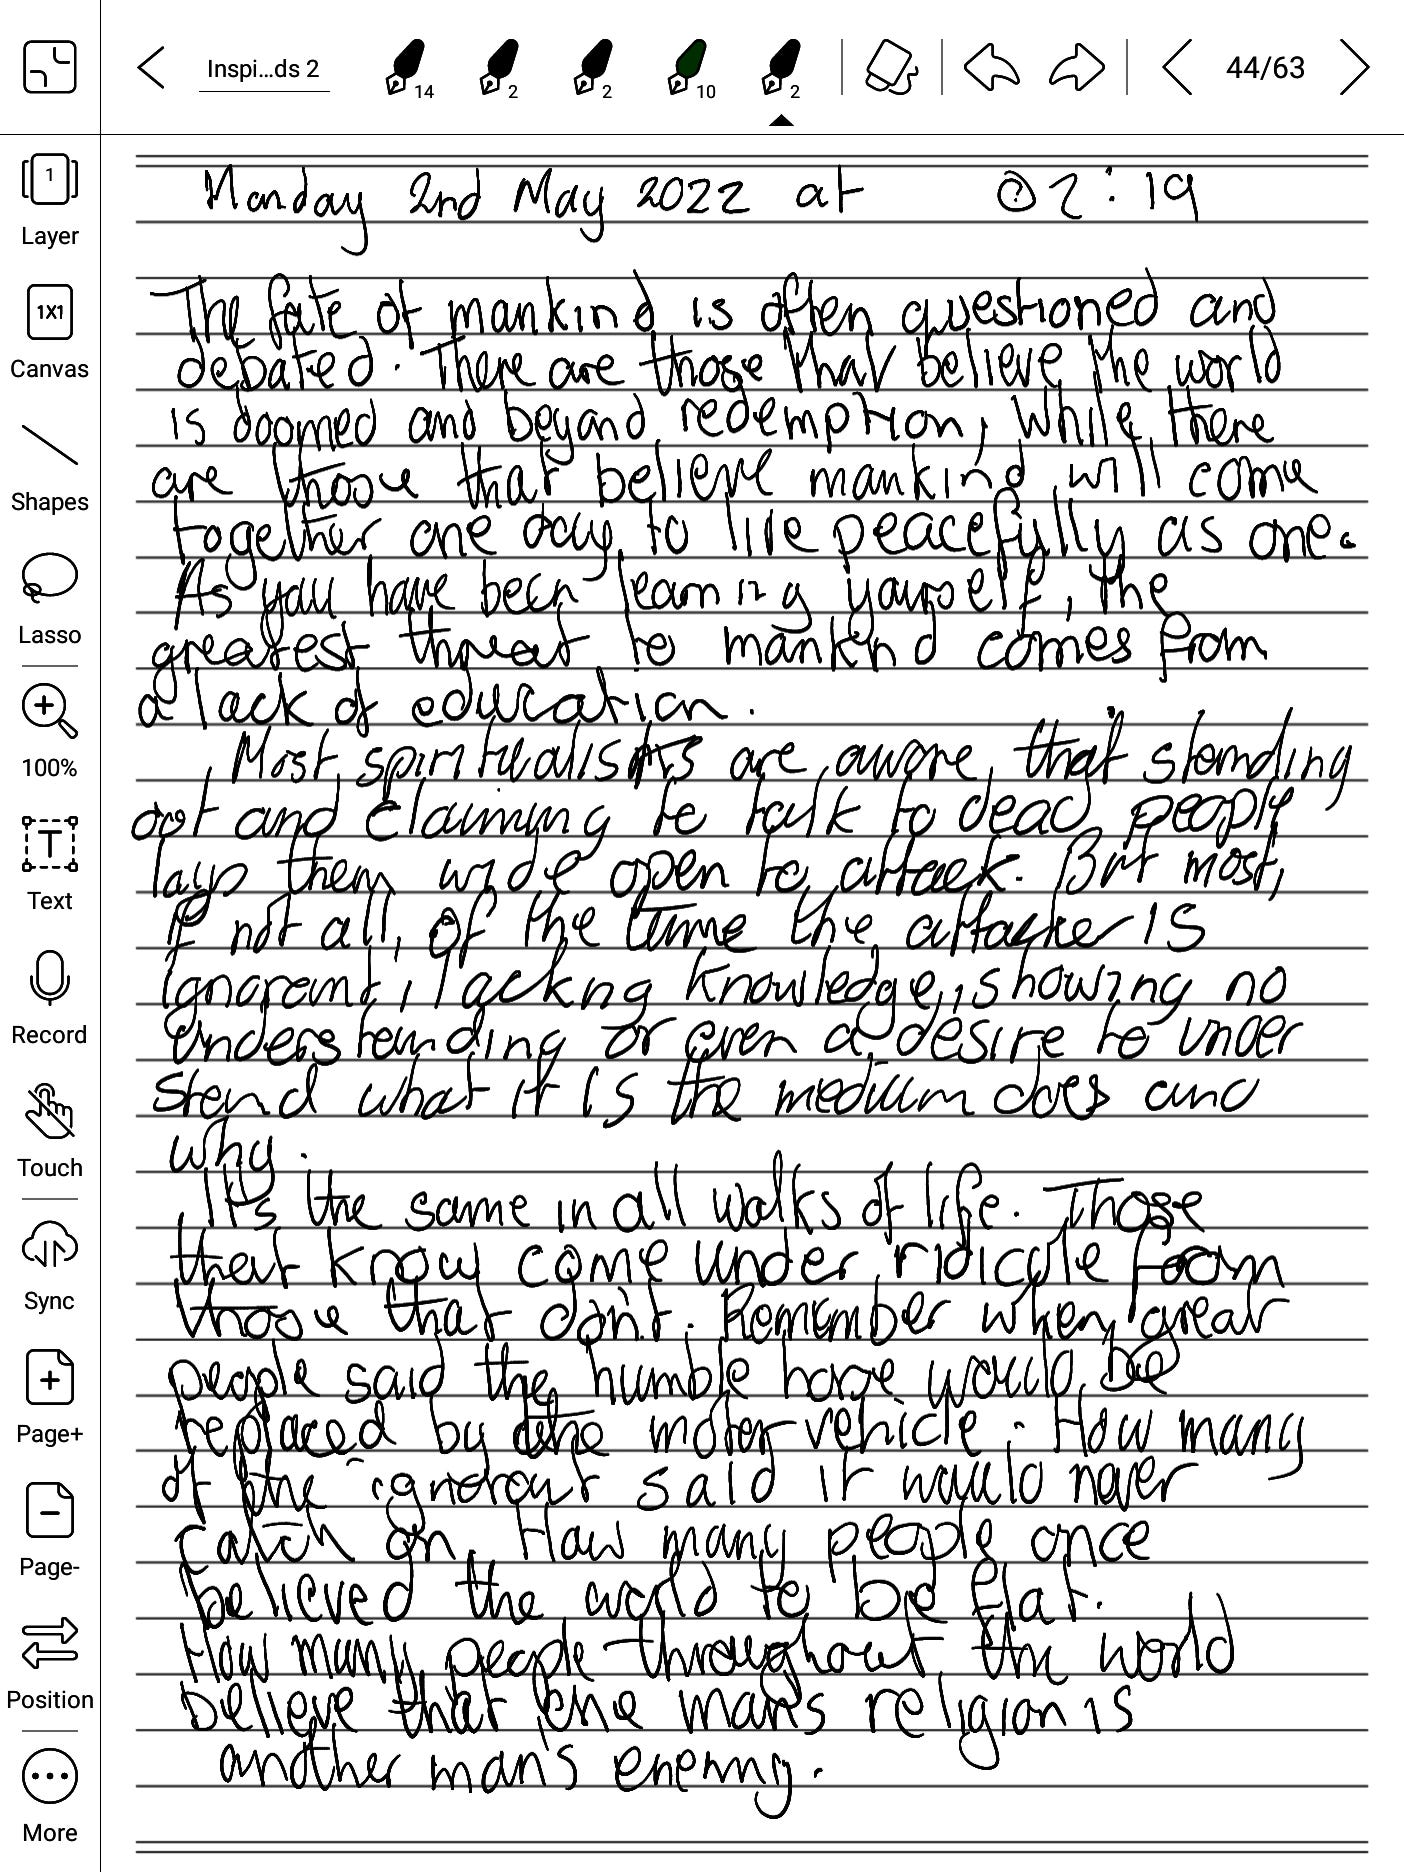 Inspi...ds 2
14
2
2
10
2
44/63
1
Layer
1X1
Canvas
Shapes
Lasso
100%
T
Text
Record
Touch
Sync
Page+
Page-
Position
More
Monday 2nd May 2022 at 02:19
The fate of mankind is often questioned and
debated. There are those that believe the world
is doomed and beyond redemption, while there
are those that believe mankind will come
together one day to live peacefully as one.
As you have been learning yourself, the
greatest threat to mankind comes from
a lack of education.
Most spiritualists are aware that standing
out and claiming to talk to dead people
lays them wide open to attack. But most,
if not all, of the time the attacker is
ignorant, lacking knowledge, showing no
understanding or even a desire to under
stand what it is the medium does and
why.
It's the same in all walks of life. Those
that know come under ridicule from
those that don't. Remember when great
people said the humble horse would be
replaced by the motor vehicle. How many
of the ignorant said it would never
catch on. How many people once
believed the world to be flat.
How many people throughout the world
believe that one man's religion is
another man's enemy.